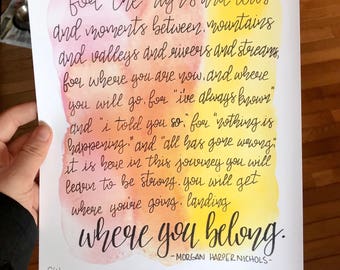 for the highs and lows
and moments between, mountains
and valleys and rivers and streams,
for where you are now, and where
you will go, for "i've always known"
and "i told you so," for "nothing is
happening" and "all has gone wrong,"
it is here in this journey you will
learn to be strong. you will get
where you're going, landing
where you belong.
-MORGAN HARPER NICHOLS-